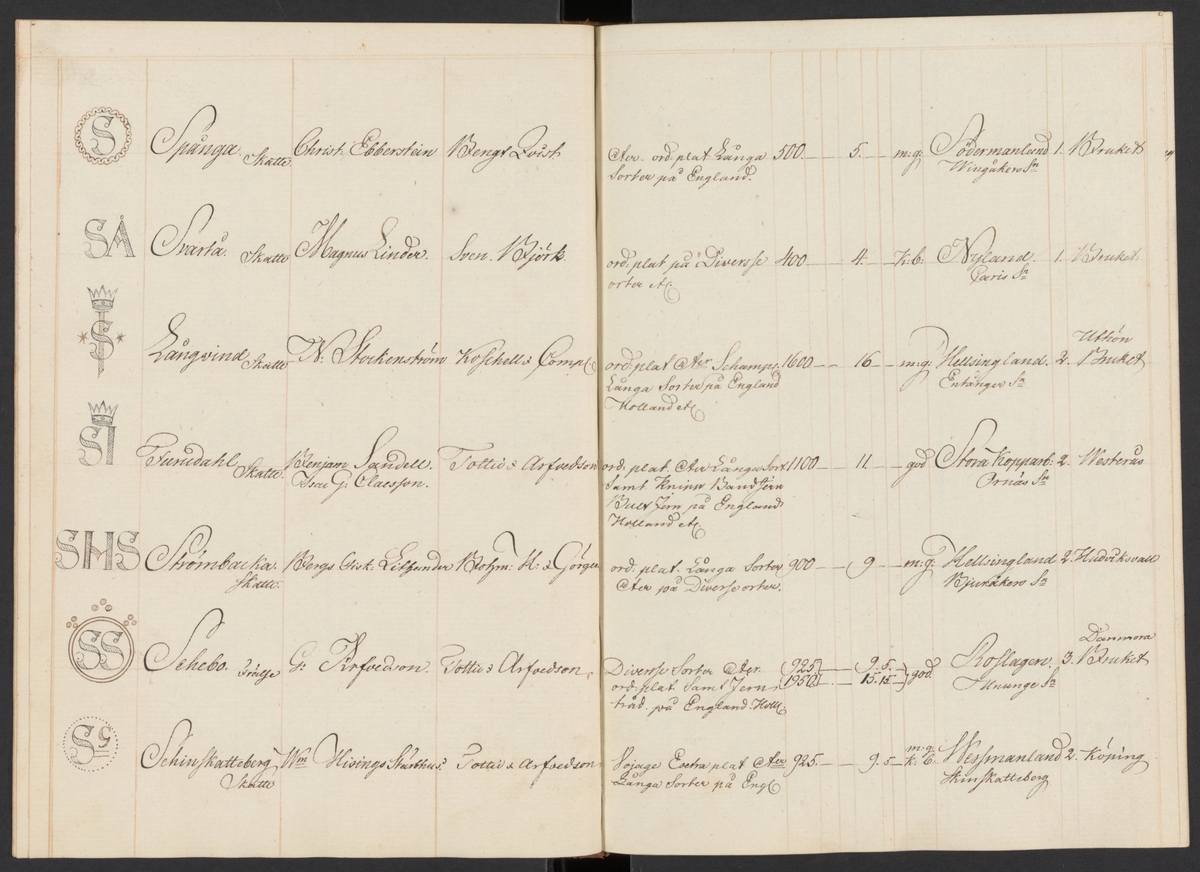 S Spånga Skatte Christ. Ebberstein Bengt Qvist Cter. ord. plat Långa 500. — 5. — m:g: Södermanland 1. Bruket
Sorter på England. Wingåkers Sn
SÅ Svartå. Skatte Magnus Linder. Sven. Björk ord. plat på Diversse 400 — 4. — K:b: Nyland. 1. Bruket
orter etc Caris Sn
S Långvind Skatte N: Stockenström Koschell & Comp. ord. plat Cter Schamps 1600 — 16 — m:g: Hellsingland. 2. Uttiön Bruket
Långa Sorter på England Enånger Sn
Holland etc
SI Furudahl Skatte. Benjam Sandell. Tottie & Arfvedson ord. plat. Cter Långa Sort 1100 — 11 — god Stora Kopparb. 2. Westerås
Isac G: Claesson. Samt Knipp Band Jern Ornäs Sn
Bult Jern på England
Holland etc
SHS Strömbacka. Bergs Fisk. Bohm: H: & Görgen ord. plat. Långa Sorter 900 — 9 — m:g: Hellsingland 2. Hudiksvall
Skatte. Cter på Diverse orter. Bjuråkers Sn
SS Schebo. Frälse G: Arfvedson. Tottie & Arfvedson, Diverse Sorter Cter. 925 — 9. 5. god Roslagen. 3. Danmora Bruket
ord. plat. Samt Jern 1950 — 15. 15. Ununge Sn
tråd. på England. Holl
SS Schinskatteberg Wm Hisings Stärbhus Tottie & Arfvedson Vojage Extra plat Cter 925. — 9. 5 — m:g: K: b: Wessmanland 2. Köping
Skatte Långa Sorter på Engl Skinskatteberg